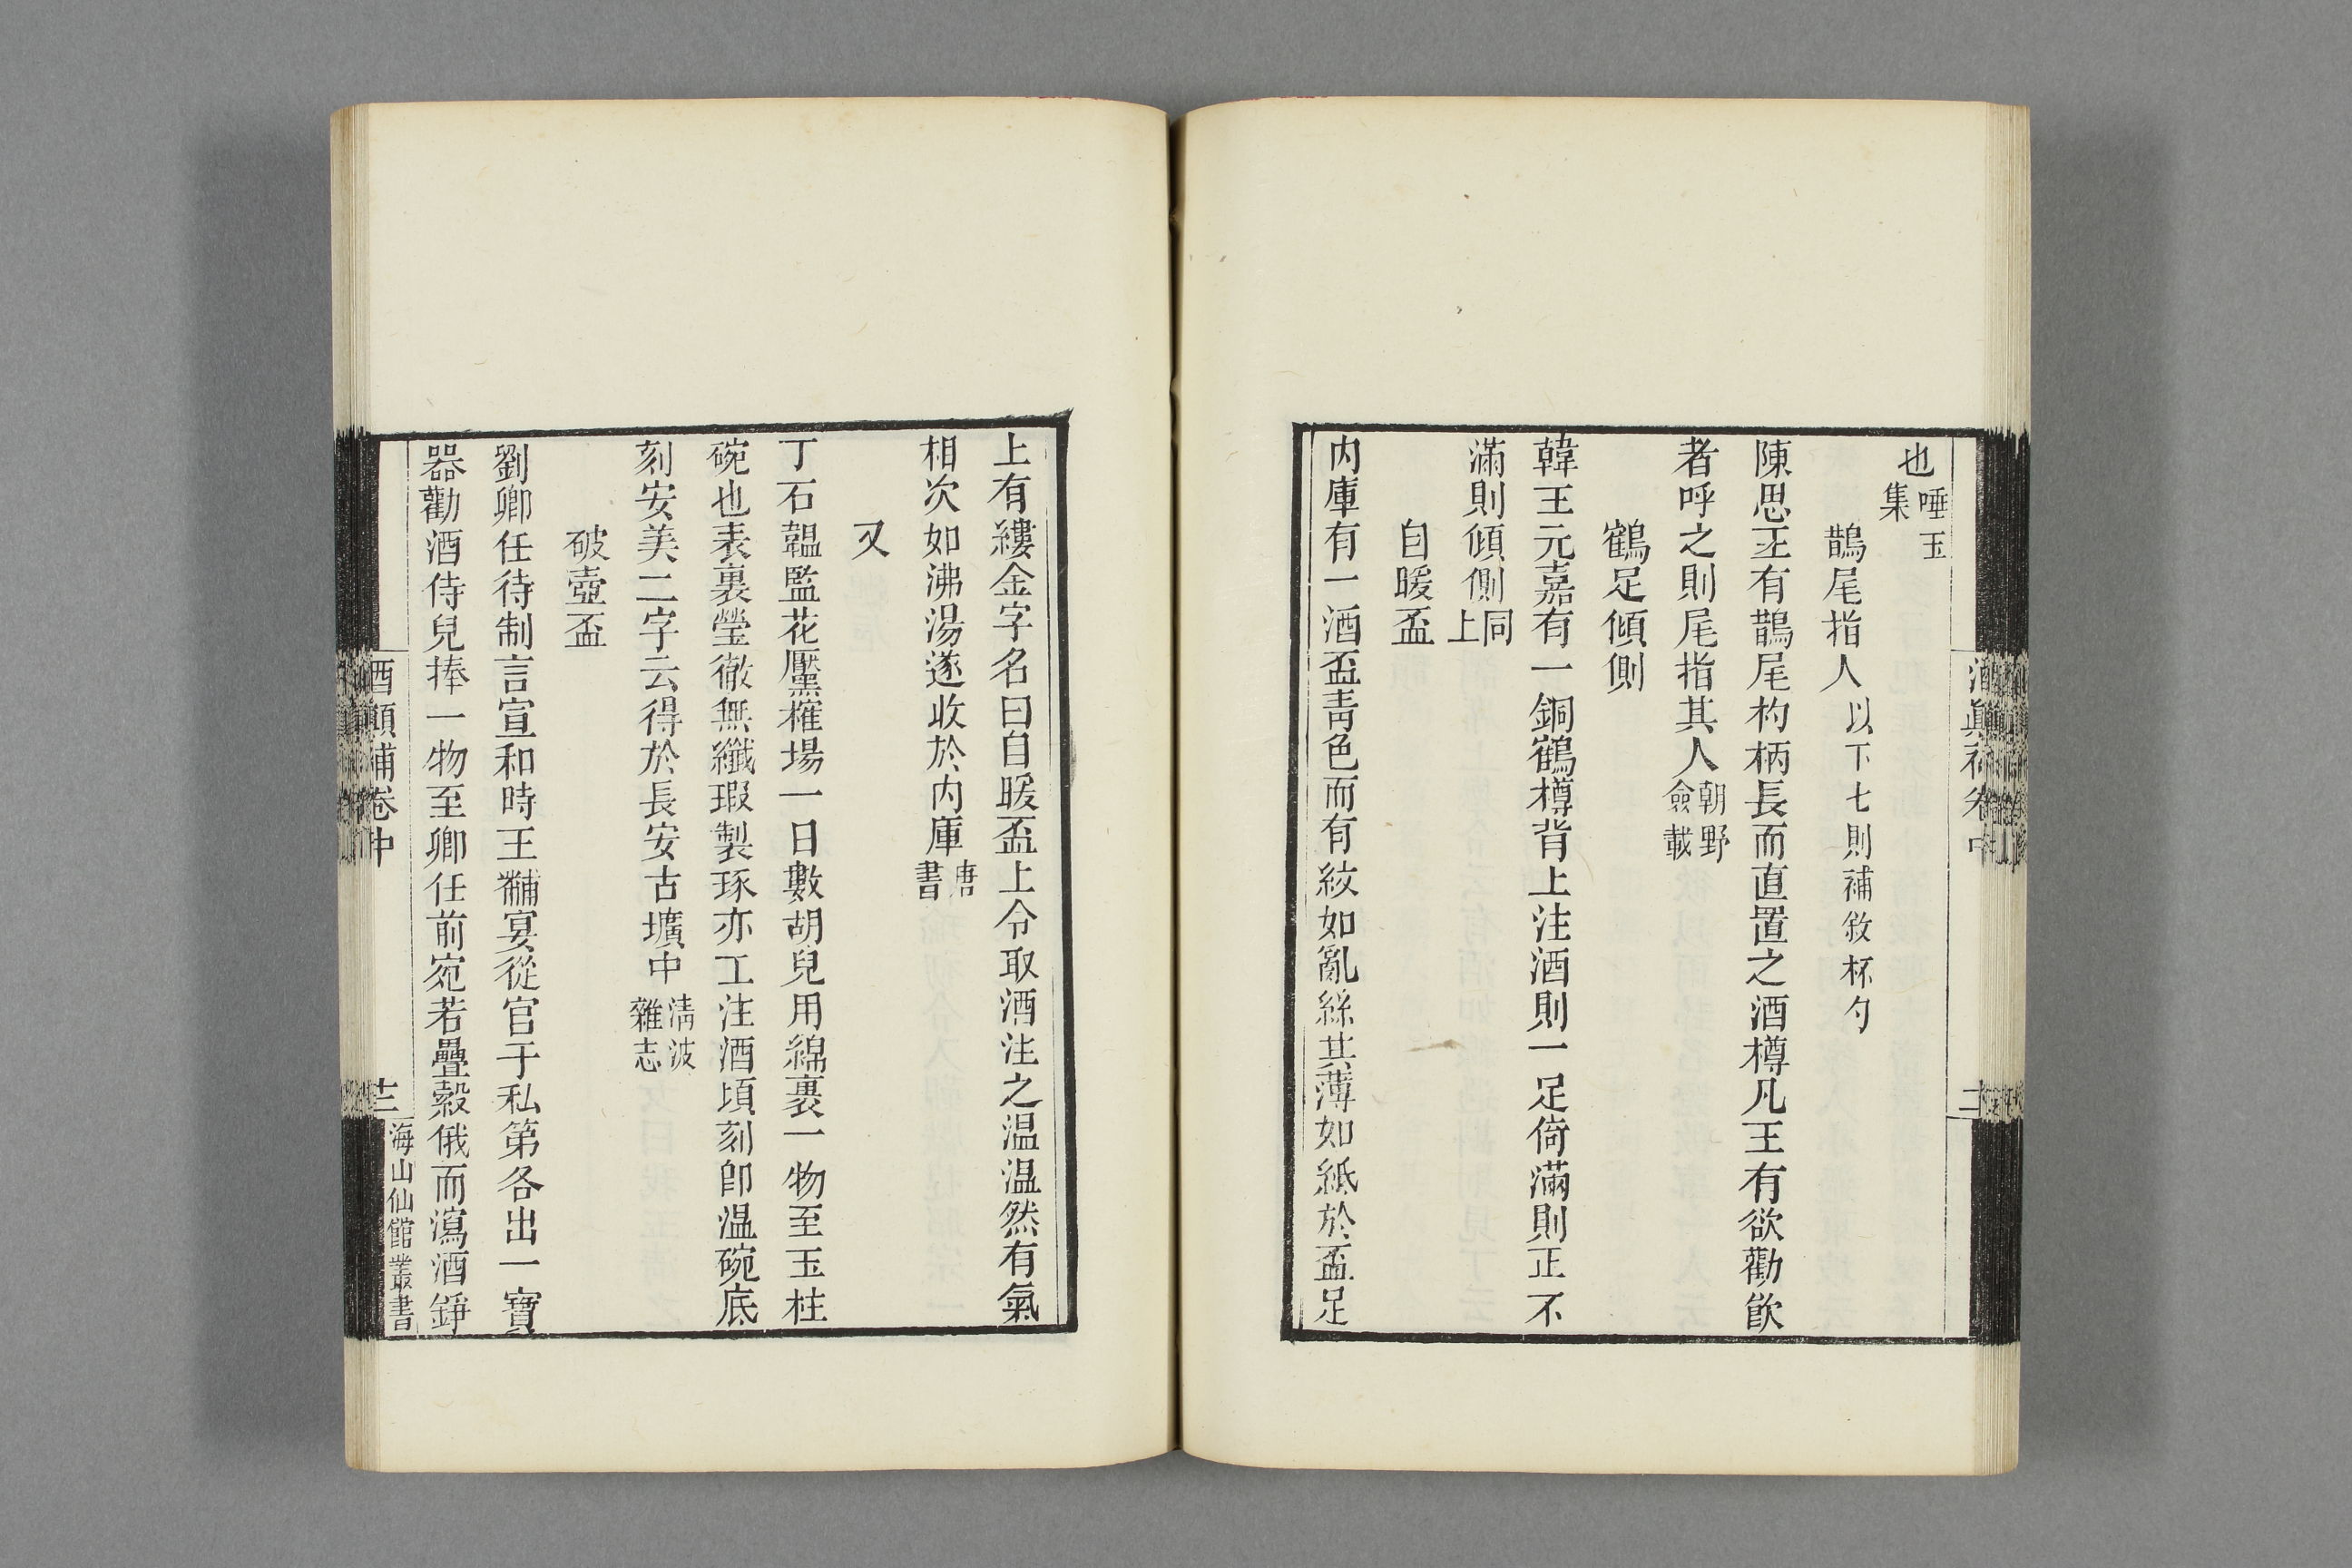 也唾玉集
鵲尾指人以下七則補敘杯勺
陳思王有鵲尾杓柄長而直置之酒樽凡王有欲勸飲
者呼之則尾指其人朝野僉載
鶴足傾側
韓王元嘉有一銅鶴樽背上注酒則一足倚滿則正不
滿則傾側同上
自暖盃
内庫有一酒盃青色而有紋如亂絲其薄如紙於盃足
上有縷金字名曰自暖盃上令取酒注之温温然有氣
相次如沸湯遂收於内庫唐書
又
丁石韞監花靨榷場一日數胡兒用綿裹一物至玉柱
碗也表裏瑩徹無纖瑕製琢亦工注酒頃刻卽温碗底
刻安美二字云得於長安古壙中清波雜志
破壺盃
劉卿任待制言宣和時王黼宴從官于私第各出一寶
器勸酒侍兒捧一物至卿任前宛若疊縠俄而瀉酒錚
酒顛補卷中
十二
海山仙館叢書